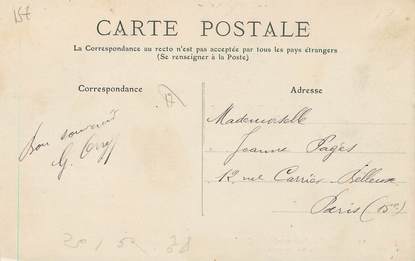 157
CARTE POSTALE
La Correspondance au recto n'est pas acceptée par tous les pays étrangers
(Se renseigner à la Poste)
Correspondance
Adresse
12
Bon souvenir
G.
Mademoiselle
Jeanne Pagès
12 rue Carrier Belleuse
Paris